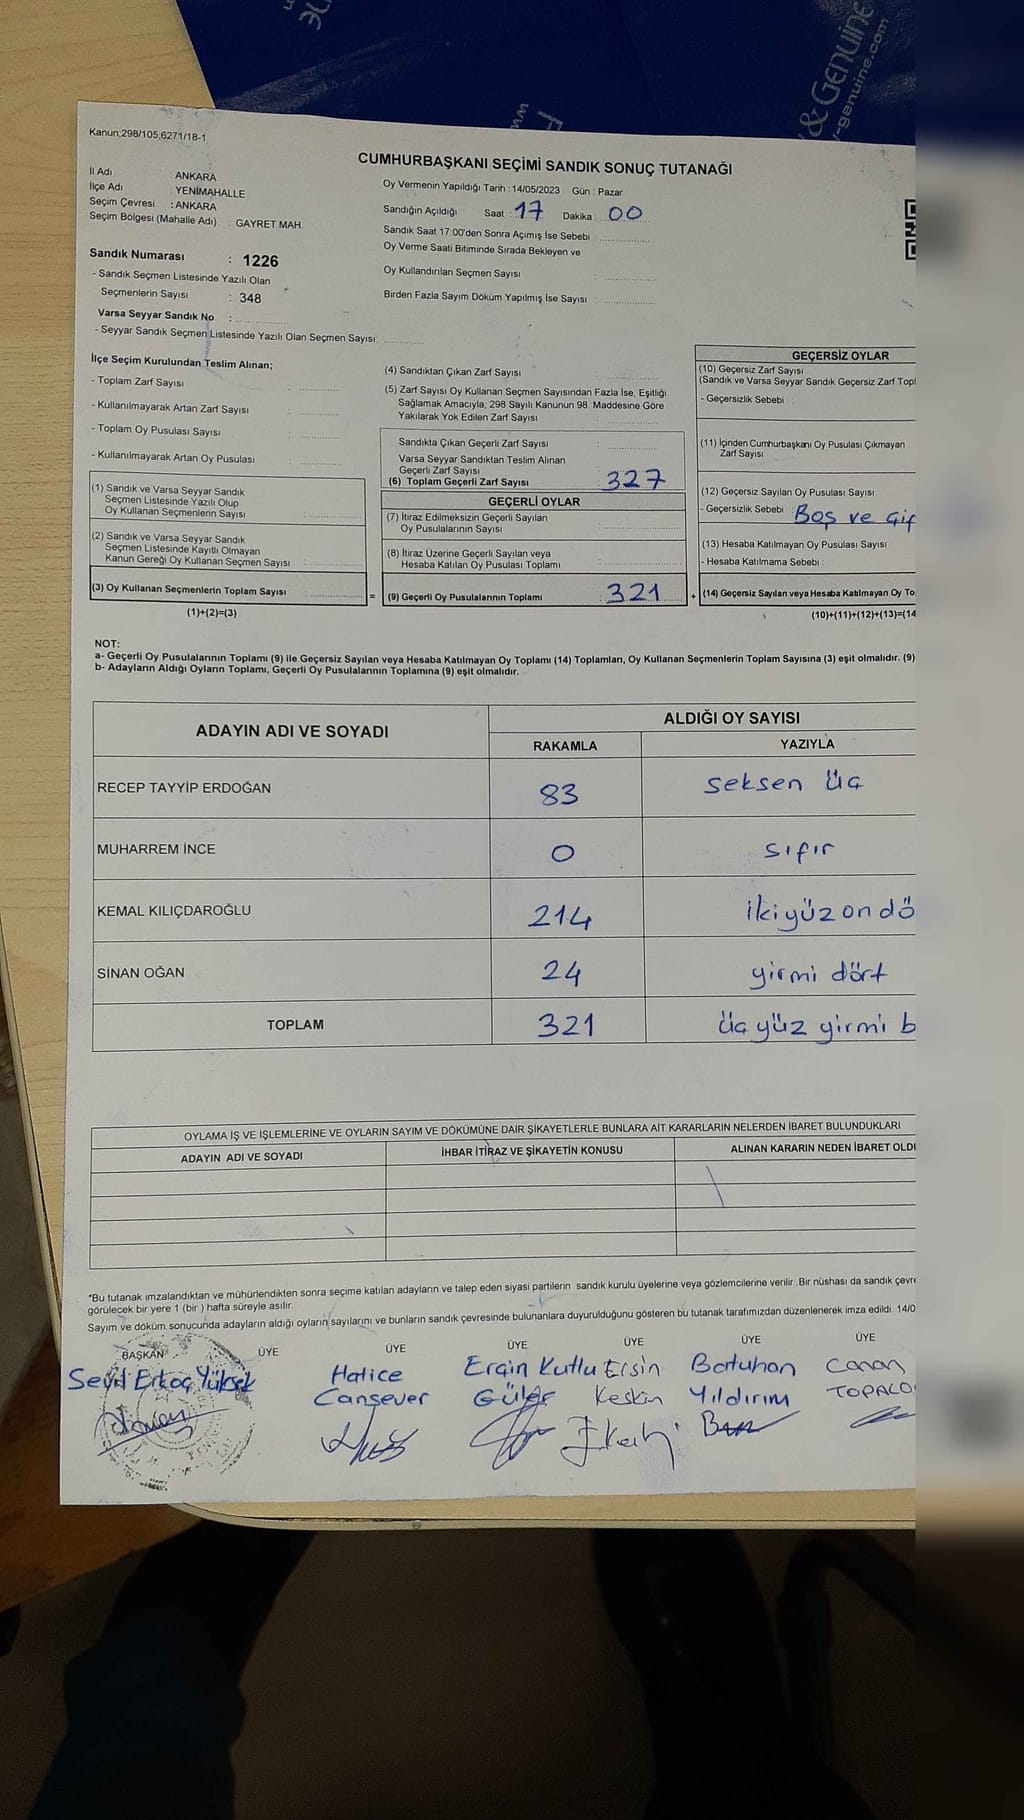 & GENUINE
y-genuine.com
Kanun;298/105,6271/18-1
CUMHURBAŞKANI SEÇİMİ SANDIK SONUÇ TUTANAĞI
İl Adı : ANKARA
İlçe Adı : YENİMAHALLE
Seçim Çevresi : ANKARA
Seçim Bölgesi (Mahalle Adı) : GAYRET MAH.
Oy Vermenin Yapıldığı Tarih : 14/05/2023 Gün : Pazar
Sandığın Açıldığı Saat : 17 Dakika : 00
Sandık Saat 17:00'den Sonra Açımış İse Sebebi :
Oy Verme Saati Bitiminde Sırada Bekleyen ve
Oy Kullandırılan Seçmen Sayısı :
Birden Fazla Sayım Döküm Yapılmış İse Sayısı :
Sandık Numarası : 1226
- Sandık Seçmen Listesinde Yazılı Olan
Seçmenlerin Sayısı : 348
Varsa Seyyar Sandık No :
- Seyyar Sandık Seçmen Listesinde Yazılı Olan Seçmen Sayısı:
İlçe Seçim Kurulundan Teslim Alınan;
- Toplam Zarf Sayısı :
- Kullanılmayarak Artan Zarf Sayısı :
- Toplam Oy Pusulası Sayısı :
- Kullanılmayarak Artan Oy Pusulası :
(1) Sandık ve Varsa Seyyar Sandık
Seçmen Listesinde Yazılı Olup
Oy Kullanan Seçmenlerin Sayısı :
(2) Sandık ve Varsa Seyyar Sandık
Seçmen Listesinde Kayıtlı Olmayan
Kanun Gereği Oy Kullanan Seçmen Sayısı :
(3) Oy Kullanan Seçmenlerin Toplam Sayısı : =
(1)+(2)=(3)
(4) Sandıktan Çıkan Zarf Sayısı :
(5) Zarf Sayısı Oy Kullanan Seçmen Sayısından Fazla İse, Eşitliği
Sağlamak Amacıyla, 298 Sayılı Kanunun 98. Maddesine Göre
Yakılarak Yok Edilen Zarf Sayısı :
Sandıkta Çıkan Geçerli Zarf Sayısı :
Varsa Seyyar Sandıktan Teslim Alınan
Geçerli Zarf Sayısı :
(6) Toplam Geçerli Zarf Sayısı : 327
GEÇERLİ OYLAR
(7) İtiraz Edilmeksizin Geçerli Sayılan
Oy Pusulalarının Sayısı :
(8) İtiraz Üzerine Geçerli Sayılan veya
Hesaba Katılan Oy Pusulası Toplamı :
(9) Geçerli Oy Pusulalarının Toplamı : 321 +
GEÇERSİZ OYLAR
(10) Geçersiz Zarf Sayısı
(Sandık ve Varsa Seyyar Sandık Geçersiz Zarf Topl
- Geçersizlik Sebebi :
(11) İçinden Cumhurbaşkanı Oy Pusulası Çıkmayan
Zarf Sayısı
(12) Geçersiz Sayılan Oy Pusulası Sayısı
- Geçersizlik Sebebi : Boş ve Çif
(13) Hesaba Katılmayan Oy Pusulası Sayısı
- Hesaba Katılmama Sebebi :
(14) Geçersiz Sayılan veya Hesaba Katılmayan Oy To
(10)+(11)+(12)+(13)=(14
NOT:
a- Geçerli Oy Pusulalarının Toplamı (9) ile Geçersiz Sayılan veya Hesaba Katılmayan Oy Toplamı (14) Toplamları, Oy Kullanan Seçmenlerin Toplam Sayısına (3) eşit olmalıdır. (9)
b- Adayların Aldığı Oyların Toplamı, Geçerli Oy Pusulalarının Toplamına (9) eşit olmalıdır.
ADAYIN ADI VE SOYADI
ALDIĞI OY SAYISI
RAKAMLA YAZIYLA
RECEP TAYYİP ERDOĞAN 83 seksen üç
MUHARREM İNCE 0 sıfır
KEMAL KILIÇDAROĞLU 214 ikiyüz on dö
SİNAN OĞAN 24 yirmi dört
TOPLAM 321 üçyüz yirmi b
OYLAMA İŞ VE İŞLEMLERİNE VE OYLARIN SAYIM VE DÖKÜMÜNE DAİR ŞİKAYETLERLE BUNLARA AİT KARARLARIN NELERDEN İBARET BULUNDUKLARI
ADAYIN ADI VE SOYADI İHBAR İTİRAZ VE ŞİKAYETİN KONUSU ALINAN KARARIN NEDEN İBARET OLDU
*Bu tutanak imzalandıktan ve mühürlendikten sonra seçime katılan adayların ve talep eden siyasi partilerin sandık kurulu üyelerine veya gözlemcilerine verilir. Bir nüshası da sandık çevre
görülecek bir yere 1 (bir ) hafta süreyle asılır.
Sayım ve döküm sonucunda adayların aldığı oyların sayılarını ve bunların sandık çevresinde bulunanlara duyurulduğunu gösteren bu tutanak tarafımızdan düzenlenerek imza edildi. 14/0
BAŞKAN ÜYE ÜYE ÜYE ÜYE ÜYE ÜYE
Hatice Cansever
Ergin Kutlu Güler
Ersin Keskin
Batuhan Yıldırım
Canan TOPALO